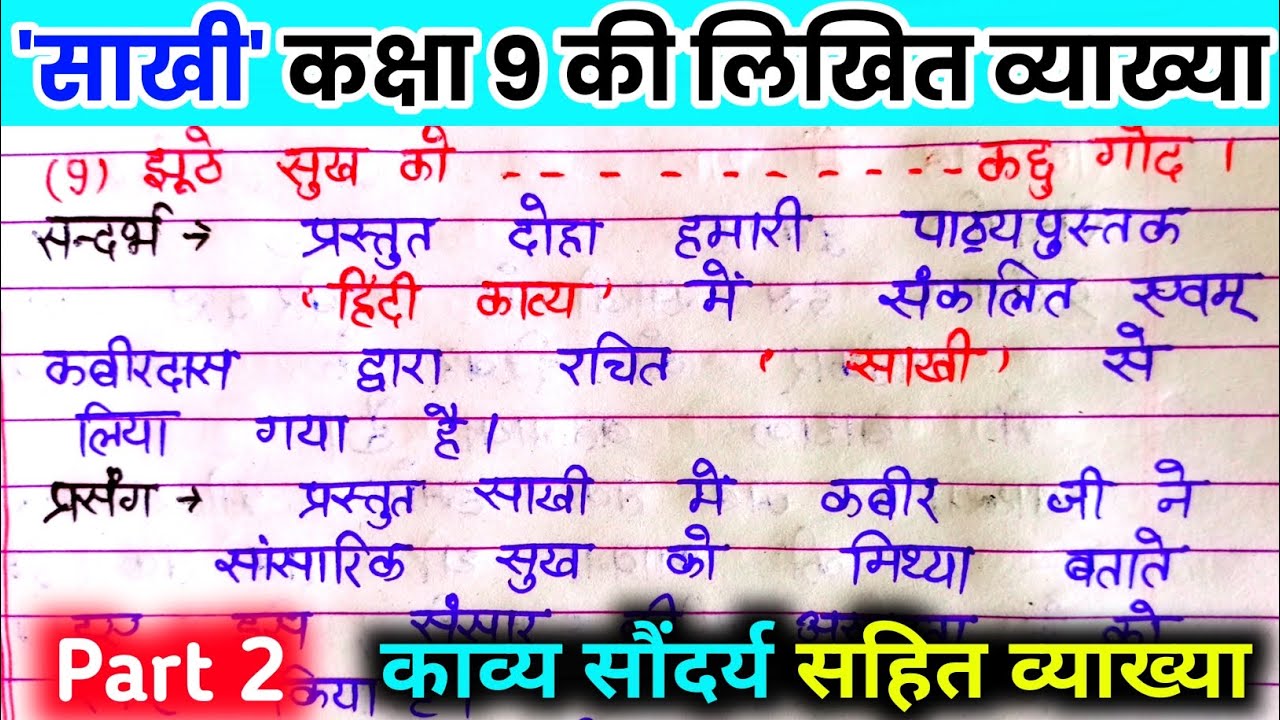 'साखी' कक्षा 9 की लिखित व्याख्या
(9) झूठे सुख को - - - - - - - - - - कछु गोद ।
सन्दर्भ → प्रस्तुत दोहा हमारी पाठ्यपुस्तक
'हिंदी काव्य' में संकलित एवम्
कबीरदास द्वारा रचित 'साखी' से
लिया गया है।
प्रसंग → प्रस्तुत साखी मे कबीर जी ने
सांसारिक सुख को मिथ्या बताते
संसार को
किया
Part 2 काव्य सौंदर्य सहित व्याख्या